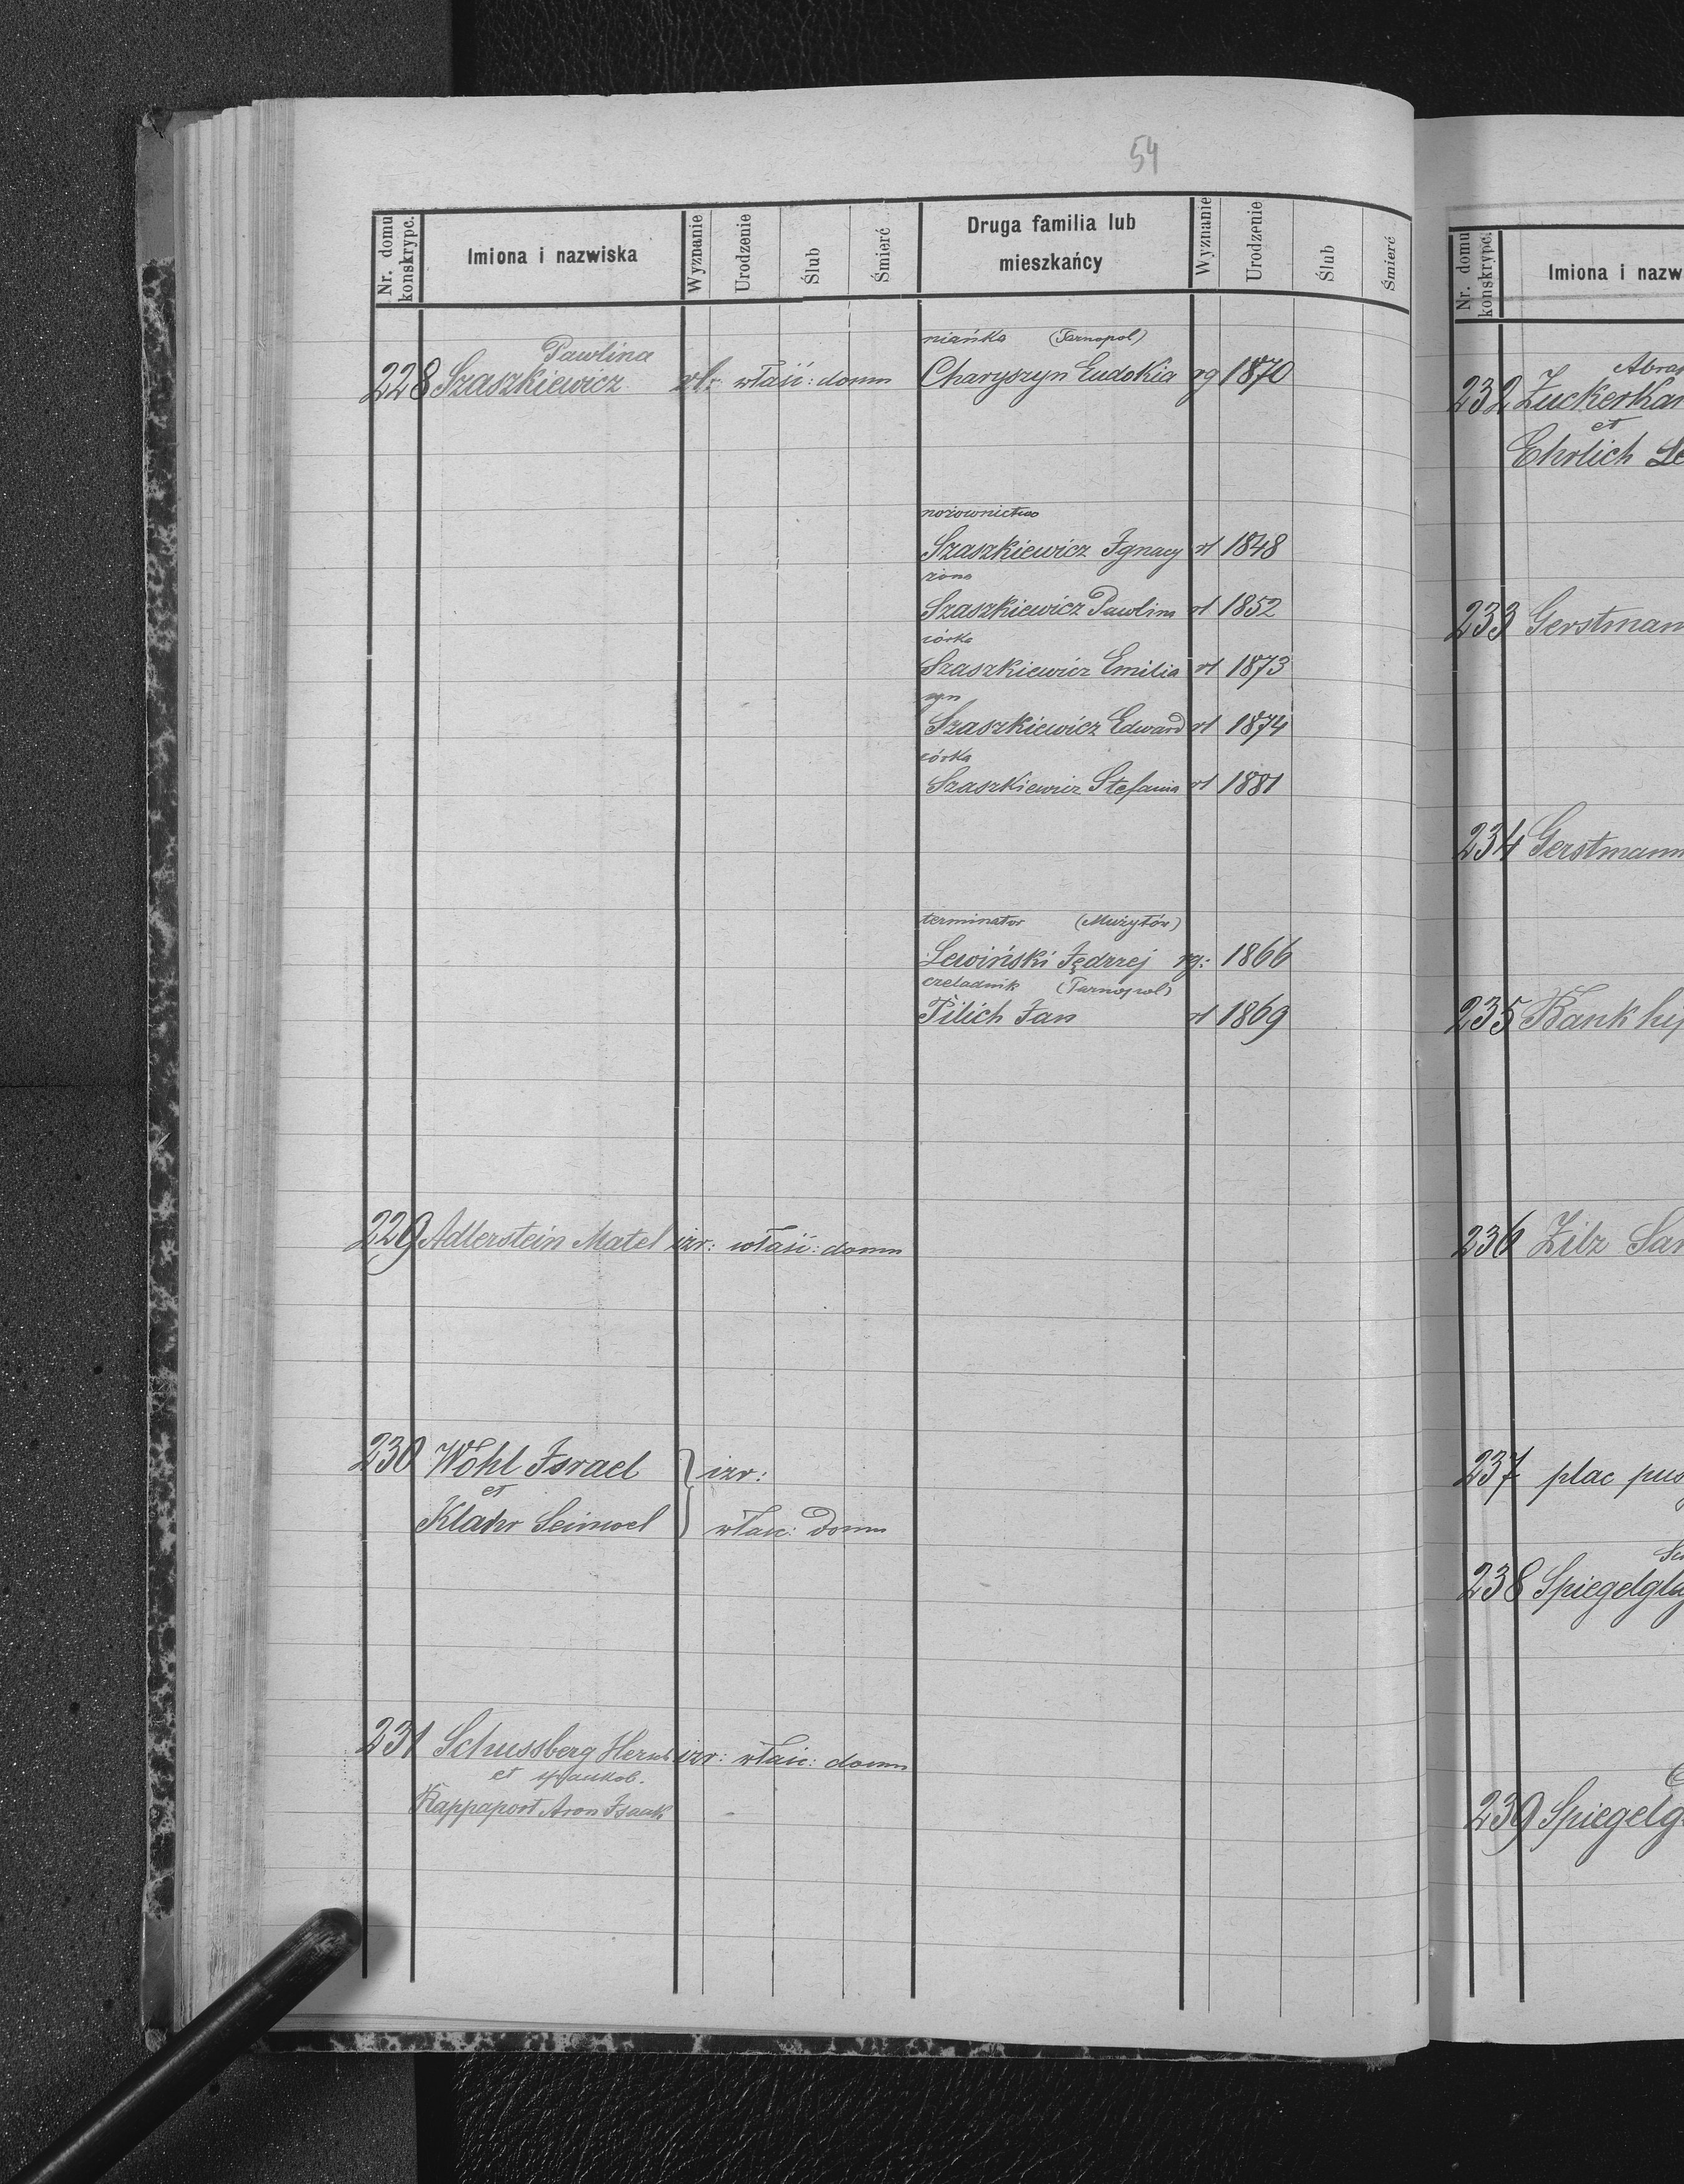 54
Nr. domu konskrypc. Imiona i nazwiska Wyznanie Urodzenie Ślub Śmierć Druga familia lub mieszkańcy Wyznanie Urodzenie Ślub Śmierć
niańka (Tarnopol)
Pawlina
228 Szaszkiewicz rł: właśc: domu Charyszyn Eudokia rg 1870
nożownictwo
Szaszkiewicz Ignacy rł 1848
żona
Szaszkiewicz Pawlina rł 1852
córka
Szaszkiewicz Emilia rł 1873
syn
Szaszkiewicz Edward rł 1874
córka
Szaszkiewicz Stefania rł 1881
terminator (Mużyłów)
Lewiński Jędrzej rg: 1866
czeladnik (Tarnopol)
Pilich Jan rł 1869
229 Adlerstein Matel izr: właśc: domu
230 Wohl Israel izr:
et
Klahr Seinwel właśc: domu
231 Schussberg izr: właśc: domu
et
Rappaport Aron Isaak
Nr. domu konskrypc. Imiona i nazw
Abra
232 Zuckerkan
et
Ehrlich Le
233 Gerstman
234 Gerstmann
235 Bank hip
236 Zilz Sa
237 plac pus
238 Spiegelgla
239 Spiegelg